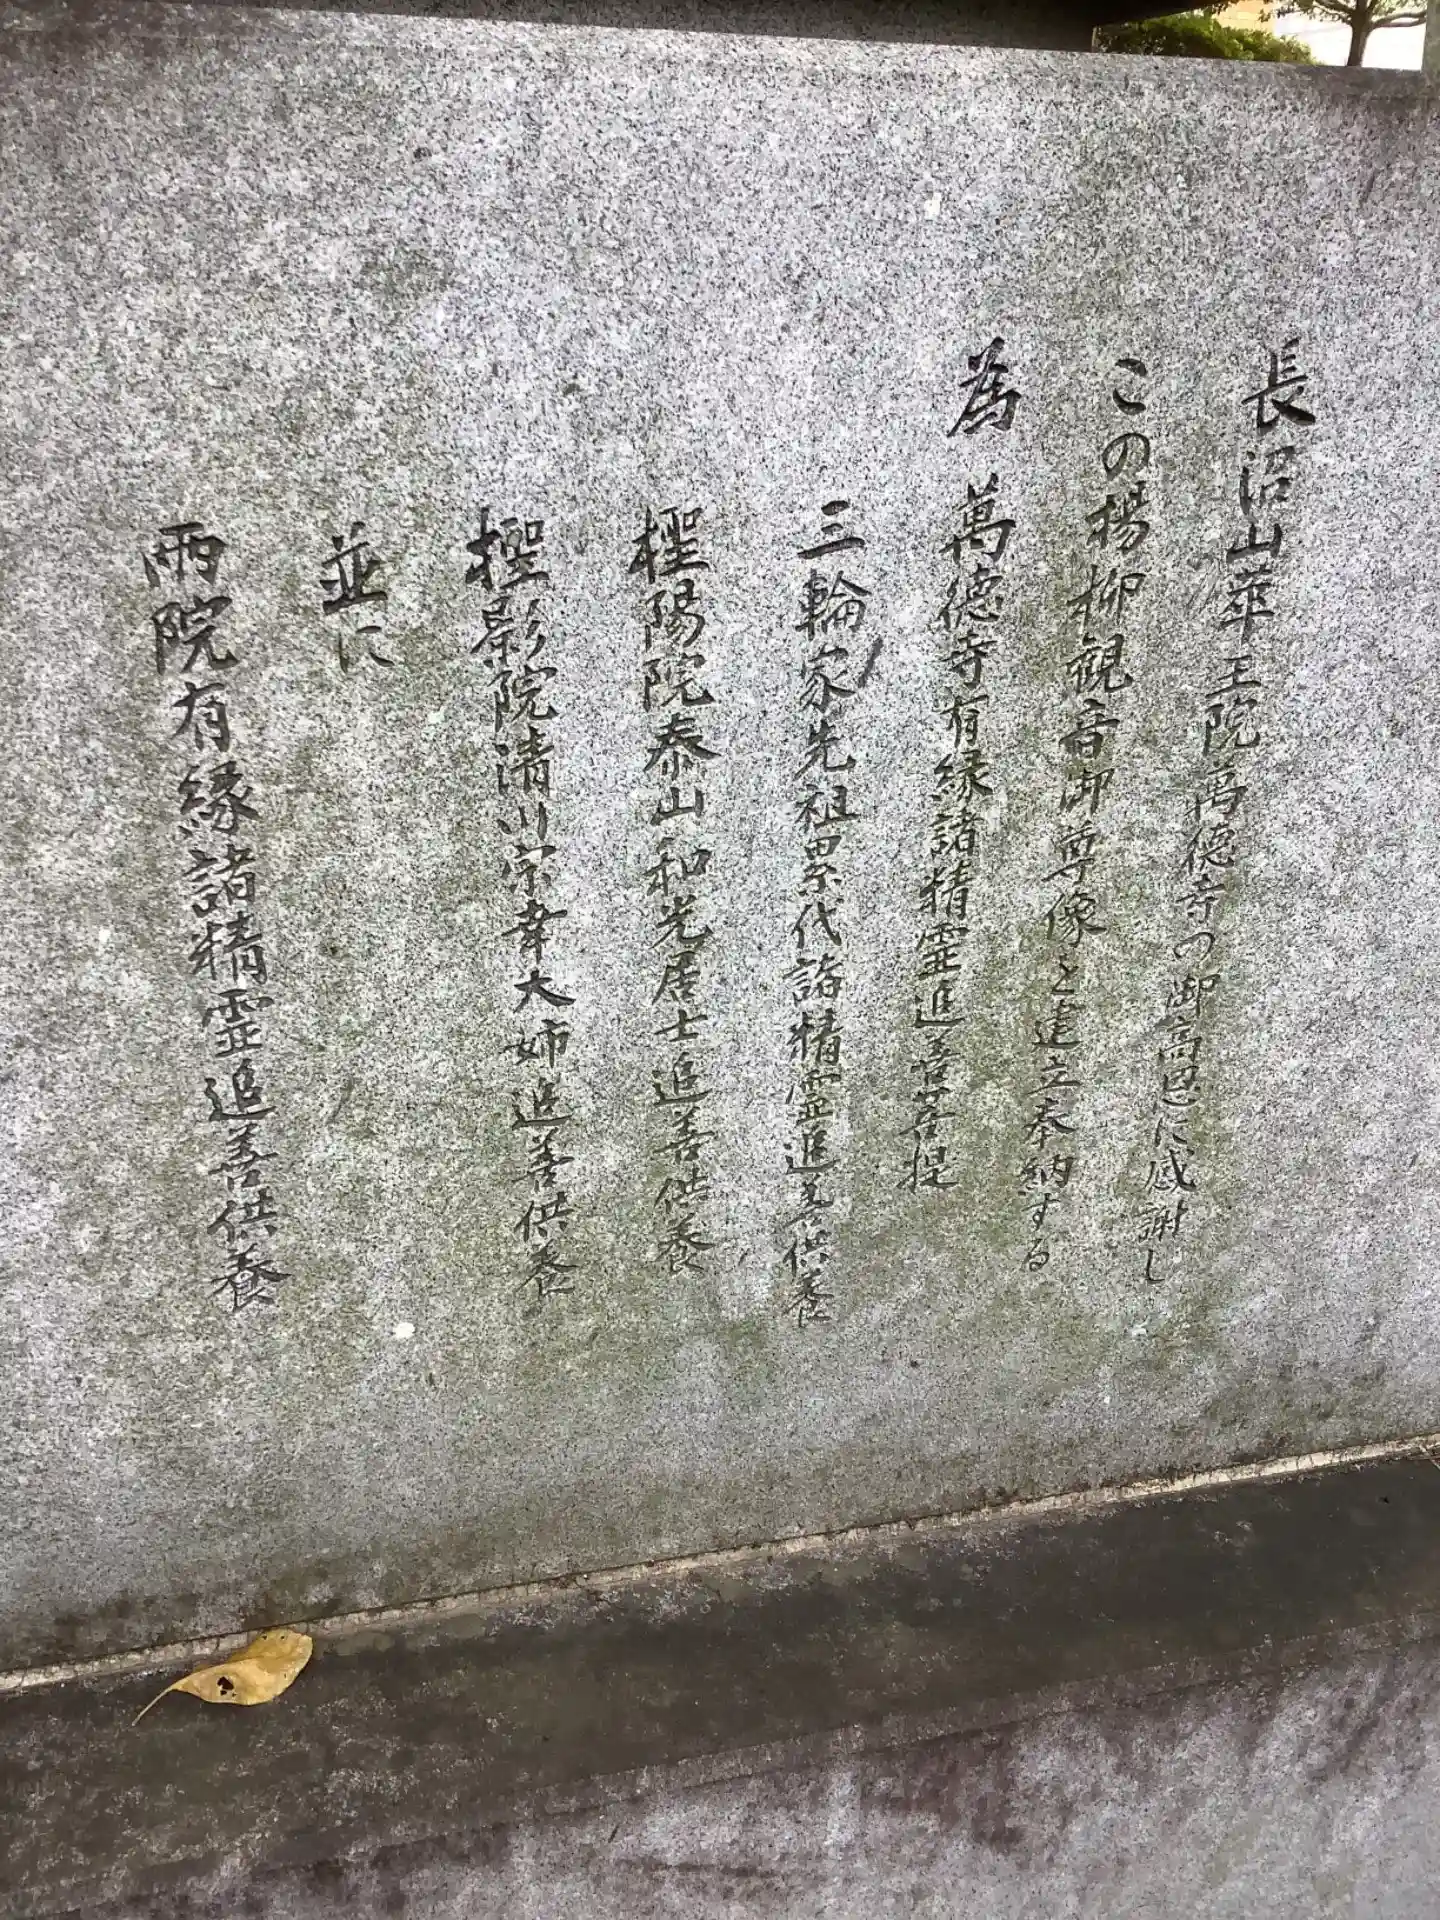 長沼山華王院萬徳寺の御高恩に感謝し
この楊柳観音御尊像を建立奉納する
為 萬徳寺有縁諸精霊追善菩提
三輪家先祖累代諸精霊追善供養
檉陽院泰山和光居士追善供養
檉影院清川宗幸大姉追善供養
並に
両院有縁諸精霊追善供養